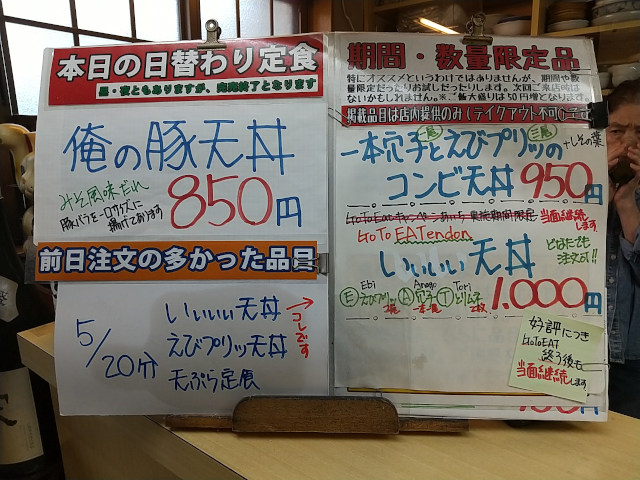 本日の日替わり定食
昼・夜ともありますが、完売終了となります
俺の豚天丼
みそ風味だれ
850円
豚バラを一口サイズに
揚げております
前日注文の多かった品目
5/20分
いいいい天丼
えびプリッツ天丼
天ぷら定食
コレです
期間・数量限定品
特にオススメというわけではありませんが、期間や数
量限定だったりお試しだったりします。次回ご来店時は
ないかもしれません。※ご飯大盛りは50円増となります
掲載品目は店内提供のみ(テイクアウト不可
一本穴子とえびプリッツの
+しその葉
コンビ天丼 950円
当面継続します
GoTo EATendon
いいいい天丼
どなたでも
注文可!!
1.000円
Ebi
Ⓔえびプリッツ
Anago
Ⓐ穴子
Tori
Ⓣとりムネ
2枚
好評につき
GoToEAT
終了後も
当面継続します